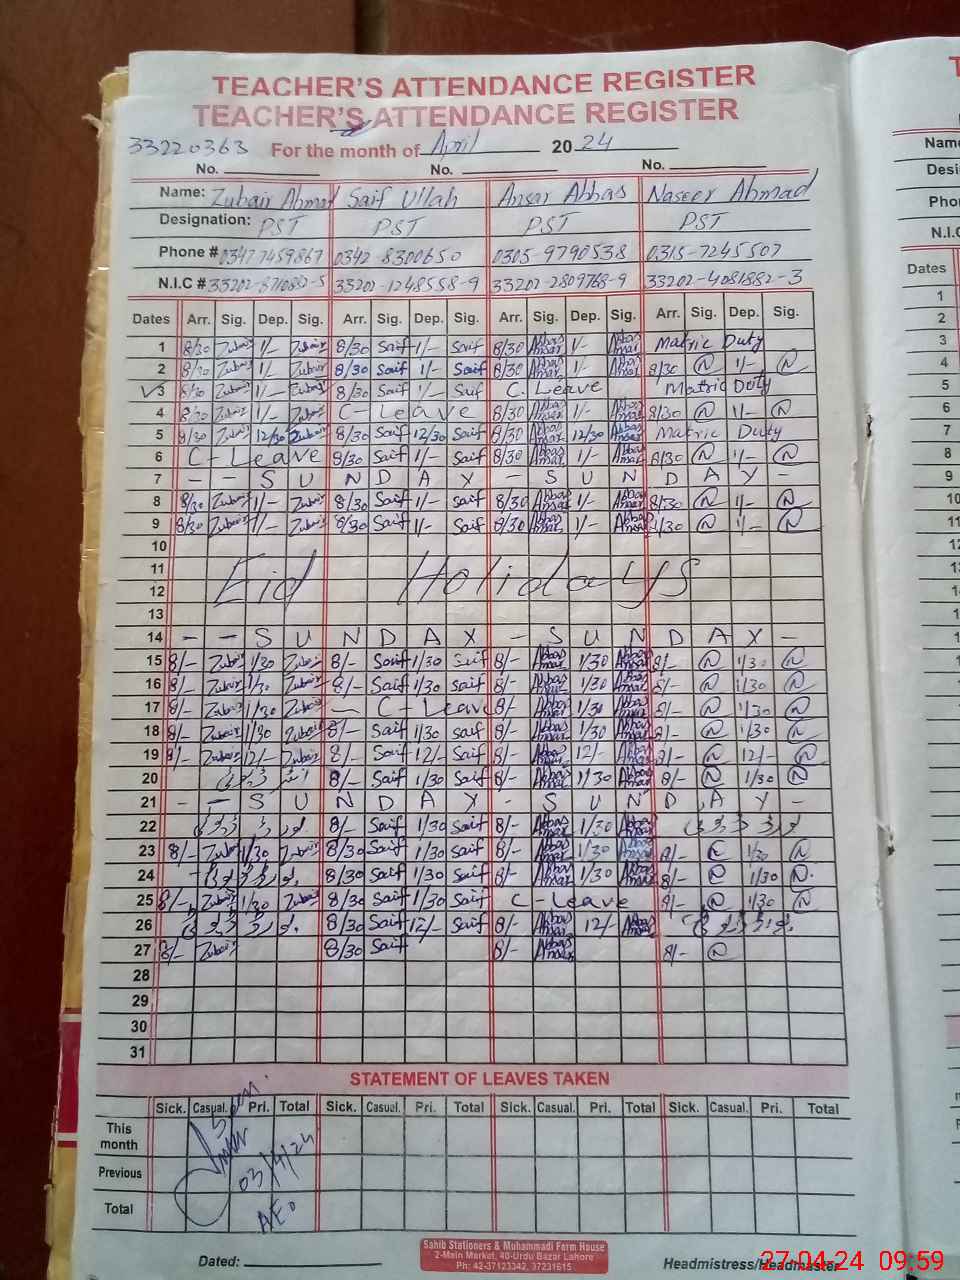 TEACHER'S ATTENDANCE REGISTER
TEACHER'S ATTENDANCE REGISTER
33220363 For the month of April 2024
No. No. No.
Name: Zubair Ahmad Saif Ullah Ansar Abbas Naseer Ahmad
Designation: PST PST PST PST
Phone # 03477459867 0342-8300650 0305-9790538 0315-7245507
N.I.C # 33202-1248558-9 33202-2809768-9 33202-4081882-3
Dates Arr. Sig. Dep. Sig. Arr. Sig. Dep. Sig. Arr. Sig. Dep. Sig. Arr. Sig. Dep. Sig.
1 8/30 Zubair 1/- Zubair 8/30 Saif 1/- Saif 8/30 Abbas Ansar 1/- Abbas Ansar Matric Duty
2 8/30 Zubair 1/- Zubair 8/30 Saif 1/- Saif 8/30 Abbas Ansar 1/- Abbas Ansar 8/30 N 1/- N
3 8/30 Zubair 1/- Zubair 8/30 Saif 1/- Saif C. Leave Matric Duty
4 8/30 Zubair 1/- Zubair C-Leave 8/30 Abbas Ansar 1/- Abbas Ansar 8/30 N 1/- N
5 8/30 Zubair 12/30 Zubair 8/30 Saif 12/30 Saif 8/30 Abbas Ansar 12/30 Abbas Ansar Matric Duty
6 C-Leave 8/30 Saif 1/- Saif 8/30 Abbas Ansar 1/- Abbas Ansar 8/30 N 1/- N
7 - - S U N D A Y - S U N D A Y -
8 8/30 Zubair 1/- Zubair 8/30 Saif 1/- Saif 8/30 Abbas Ansar 1/- Abbas Ansar 8/30 N 1/- N
9 8/30 Zubair 1/- Zubair 8/30 Saif 1/- Saif 8/30 Abbas Ansar 1/- Abbas Ansar 8/30 N 1/- N
10
11
12 Eid Holidays
13
14 - - S U N D A Y - S U N D A Y -
15 8/- Zubair 1/30 Zubair 8/- Saif 1/30 Saif 8/- Abbas Ansar 1/30 Abbas Ansar 8/- N 1/30 N
16 8/- Zubair 1/30 Zubair 8/- Saif 1/30 Saif 8/- Abbas Ansar 1/30 Abbas Ansar 8/- N 1/30 N
17 8/- Zubair 1/30 Zubair - C-Leave 8/- Abbas Ansar 1/30 Abbas Ansar 8/- N 1/30 N
18 8/- Zubair 1/30 Zubair 8/- Saif 1/30 Saif 8/- Abbas Ansar 1/30 Abbas Ansar 8/- N 1/30 N
19 8/- Zubair 12/- Zubair 8/- Saif 12/- Saif 8/- Abbas Ansar 12/- Abbas Ansar 8/- N 12/- N
20 8/- Saif 1/30 Saif 8/- Abbas Ansar 1/30 Abbas Ansar 8/- N 1/30 N
21 - - S U N D A Y - S U N D A Y -
22 8/- Saif 1/30 Saif 8/- Abbas Ansar 1/30 Abbas Ansar
23 8/- Zubair 1/30 Zubair 8/30 Saif 1/30 Saif 8/- Abbas Ansar 1/30 Abbas Ansar 8/- N 1/30 N
24 8/30 Saif 1/30 Saif 8/- Abbas Ansar 1/30 Abbas Ansar 8/- N 1/30 N
25 8/- Zubair 1/30 Zubair 8/30 Saif 1/30 Saif C-Leave 8/- N 1/30 N
26 8/30 Saif 12/- Saif 8/- Abbas Ansar 12/- Abbas Ansar
27 8/- Zubair 8/30 Saif 8/- Abbas Ansar 8/- N
28
29
30
31
STATEMENT OF LEAVES TAKEN
Sick. Casual. Pri. Total Sick. Casual. Pri. Total Sick. Casual. Pri. Total Sick. Casual. Pri. Total
This month
Previous
Total
Seen
03/4/24
AEO
Dated:
Sahib Stationers & Muhammadi Form House
2-Main Market, 40-Urdu Bazar Lahore
Ph: 42-37123342, 37231615
Headmistress/Headmaster
27.04.24 09:59
Name
Desi
Pho
N.I.C
Dates
1
2
3
4
5
6
7
8
9
10
11